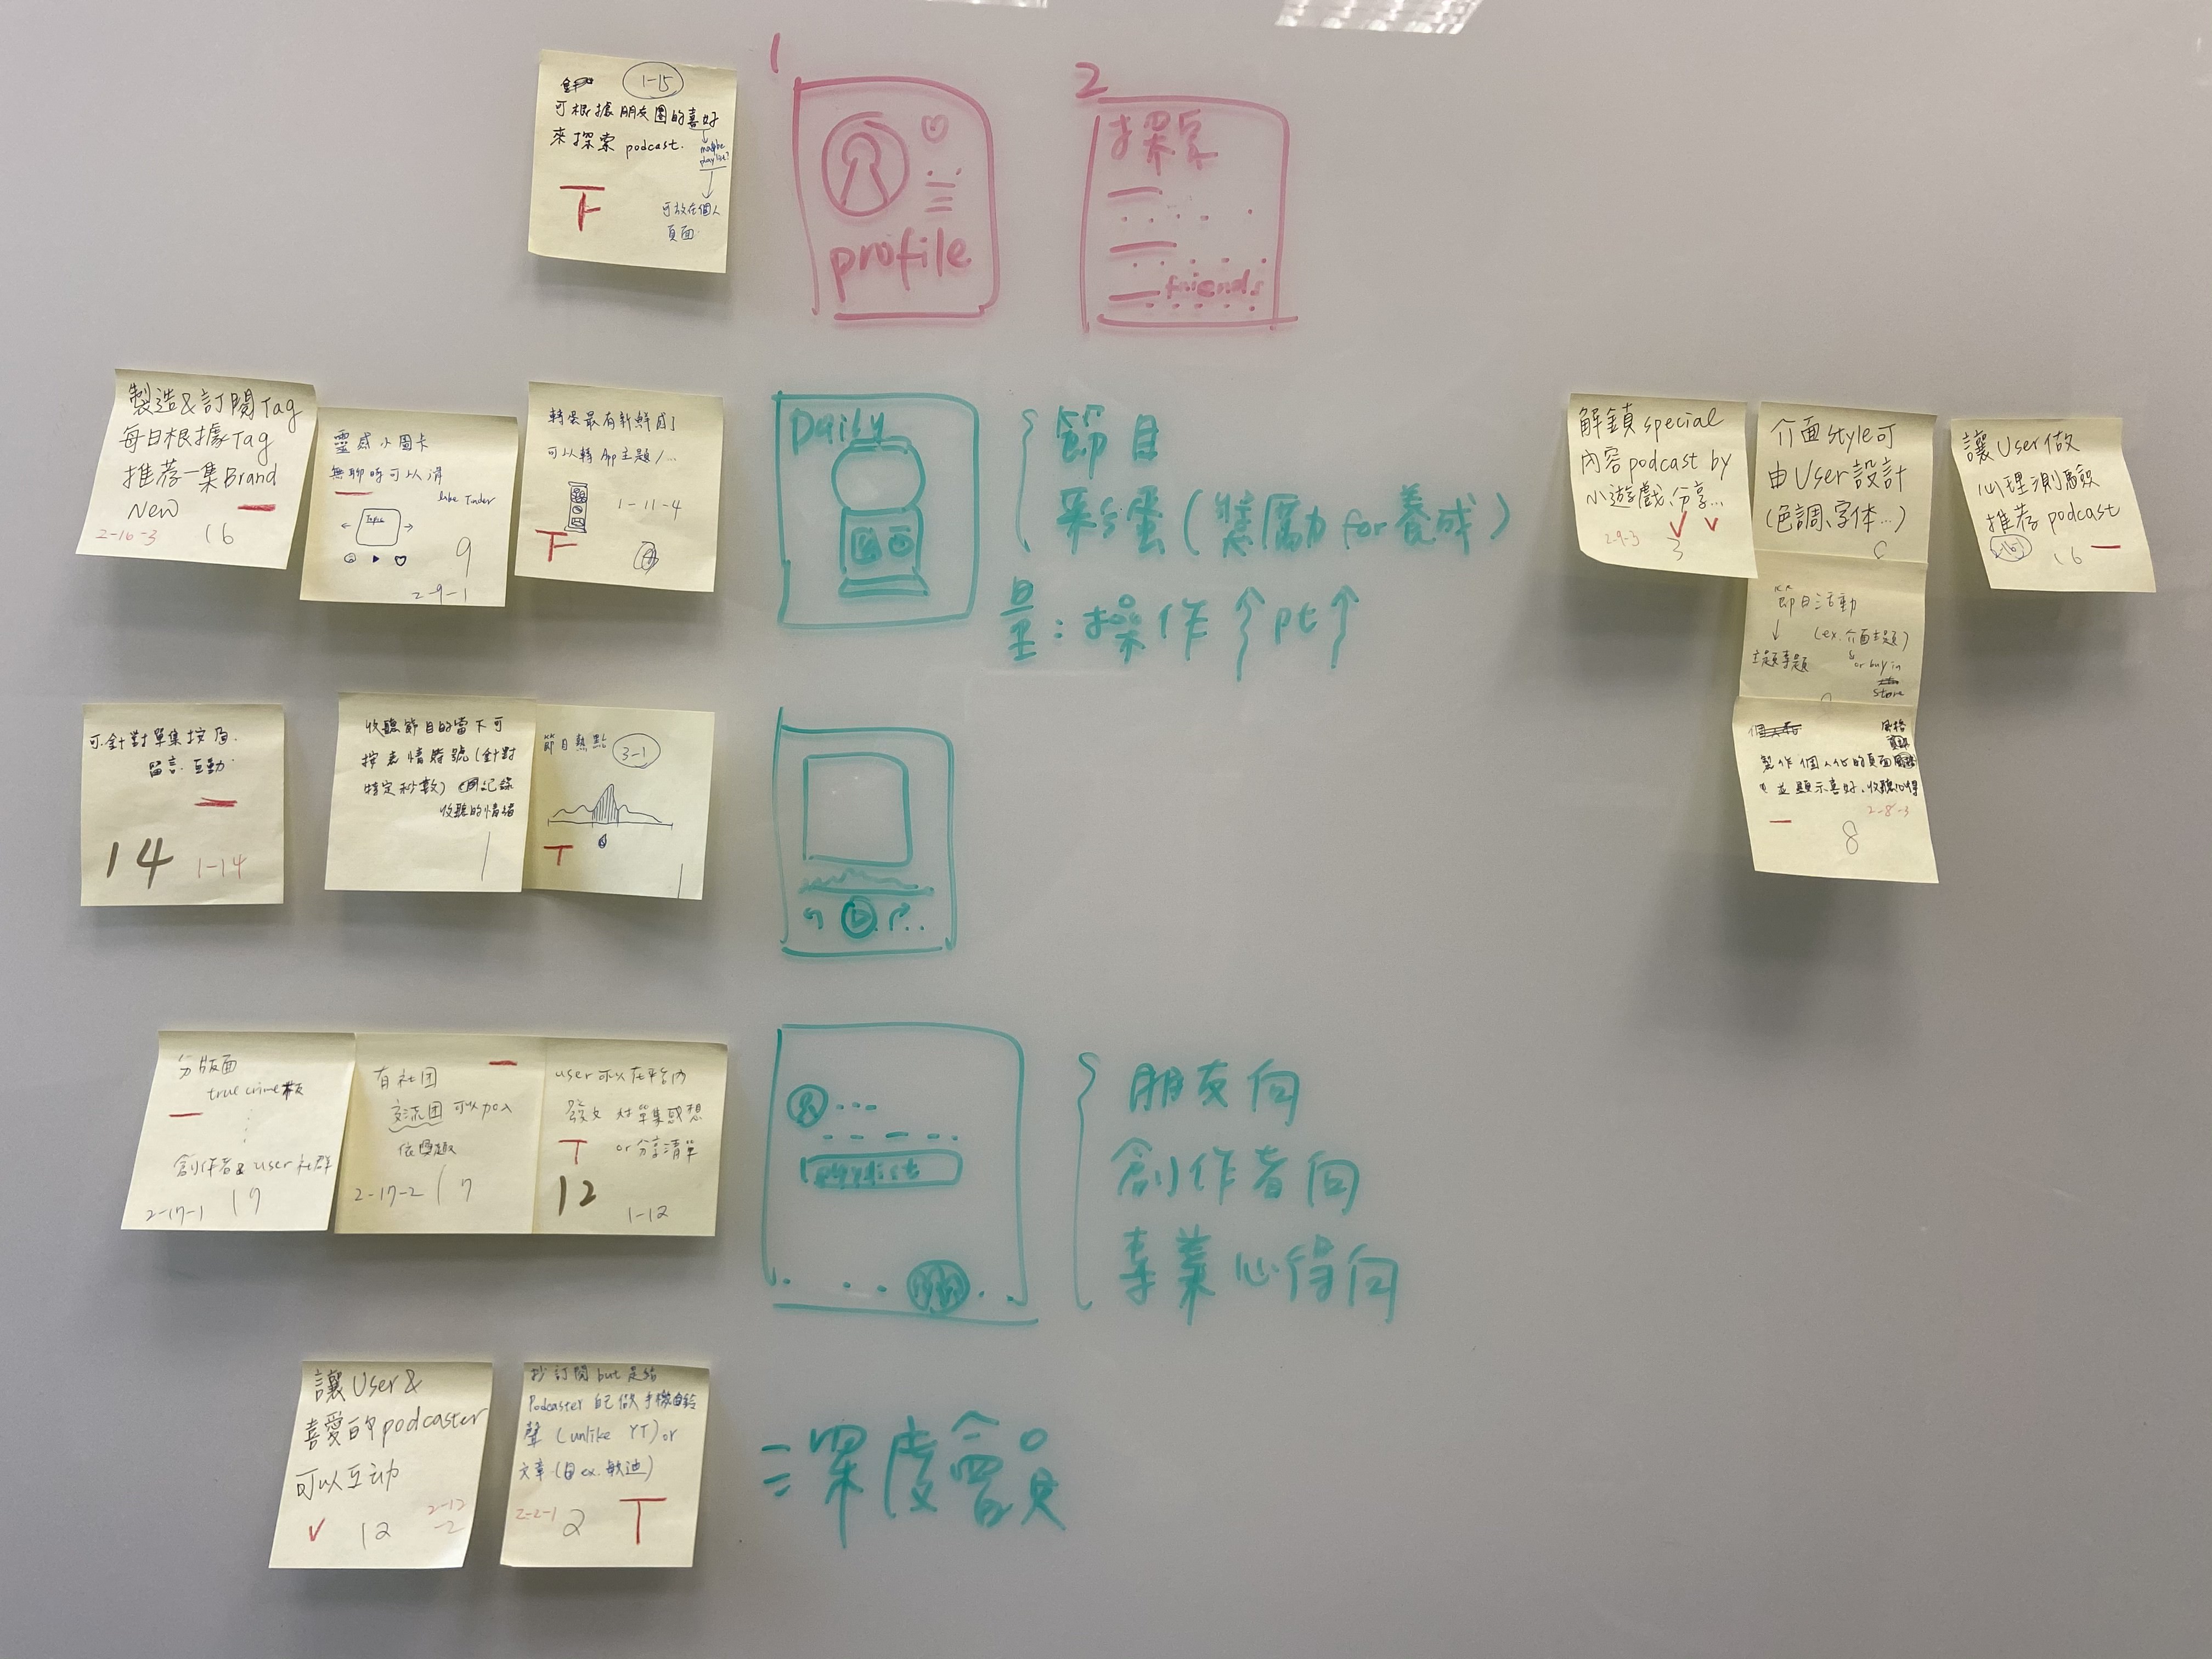 1-15
可根據朋友圈的喜好
來探索 podcast.
maybe
playlist?
可放在個人
頁面
1
profile
2
探索
friends
製造&訂閱Tag
每日根據Tag
推荐一集Brand
New
2-16-3
16
靈感小圖卡
無聊時可以滑
like Tinder
9
2-9-1
轉蛋最有新鮮感！
可以轉 節主題/...
1-11-4
Daily
節目
彩蛋(獎勵 for 養成)
量:操作↑pt↑
解鎖special
內容podcast by
小遊戲、分享...
2-9-3
3
介面style可
由User設計
(色調、字体...)
節日活動
(ex.介面主題)
主題專題
& or buy in
store
風格
製作個人化的頁面
並顯示喜好、收聽心得
2-8-3
8
讓User做
心理測驗
推荐 podcast
16
可針對單集按
留言.互動
14
1-14
收聽節目的當下可
按表情符號(針對
特定秒數) 記錄
收聽的情緒
1
節目熱點
3-1
1
分版面
true crime板
創作者&user社群
2-17-1
17
有社团
交流团 可以加入
依興趣
2-17-2
17
user可以在平台內
發文 對單集感想
or 分享清單
12
1-12
playlist
朋友向
創作者向
專業心得向
讓User&
喜愛的podcaster
可以互动
12
2-12
-2
抄訂閱but是給
Podcaster 自己做手機鈴
聲 (unlike YT) or
文章(ex.敏迪)
2-2-1
2
深度會員